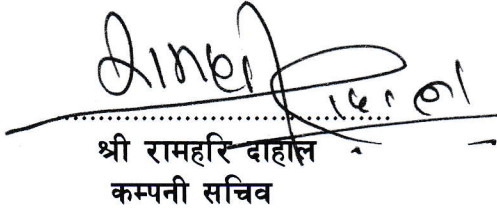 श्री रामहरि दाहाल
कम्पनी सचिव